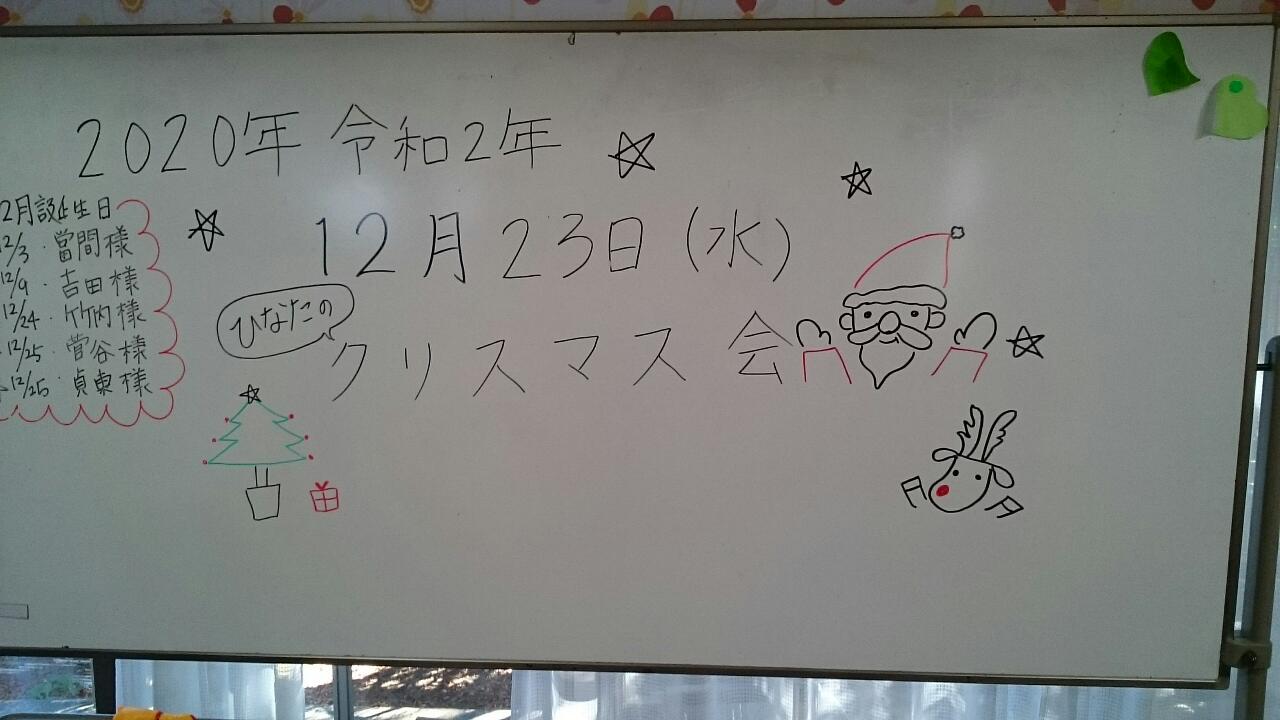 2020年 令和2年
12月23日(水)
ひなたの
クリスマス会
2月誕生日
12/3・當間様
12/9・吉田様
12/24・竹内様
12/25・菅谷様
12/25・貞東様